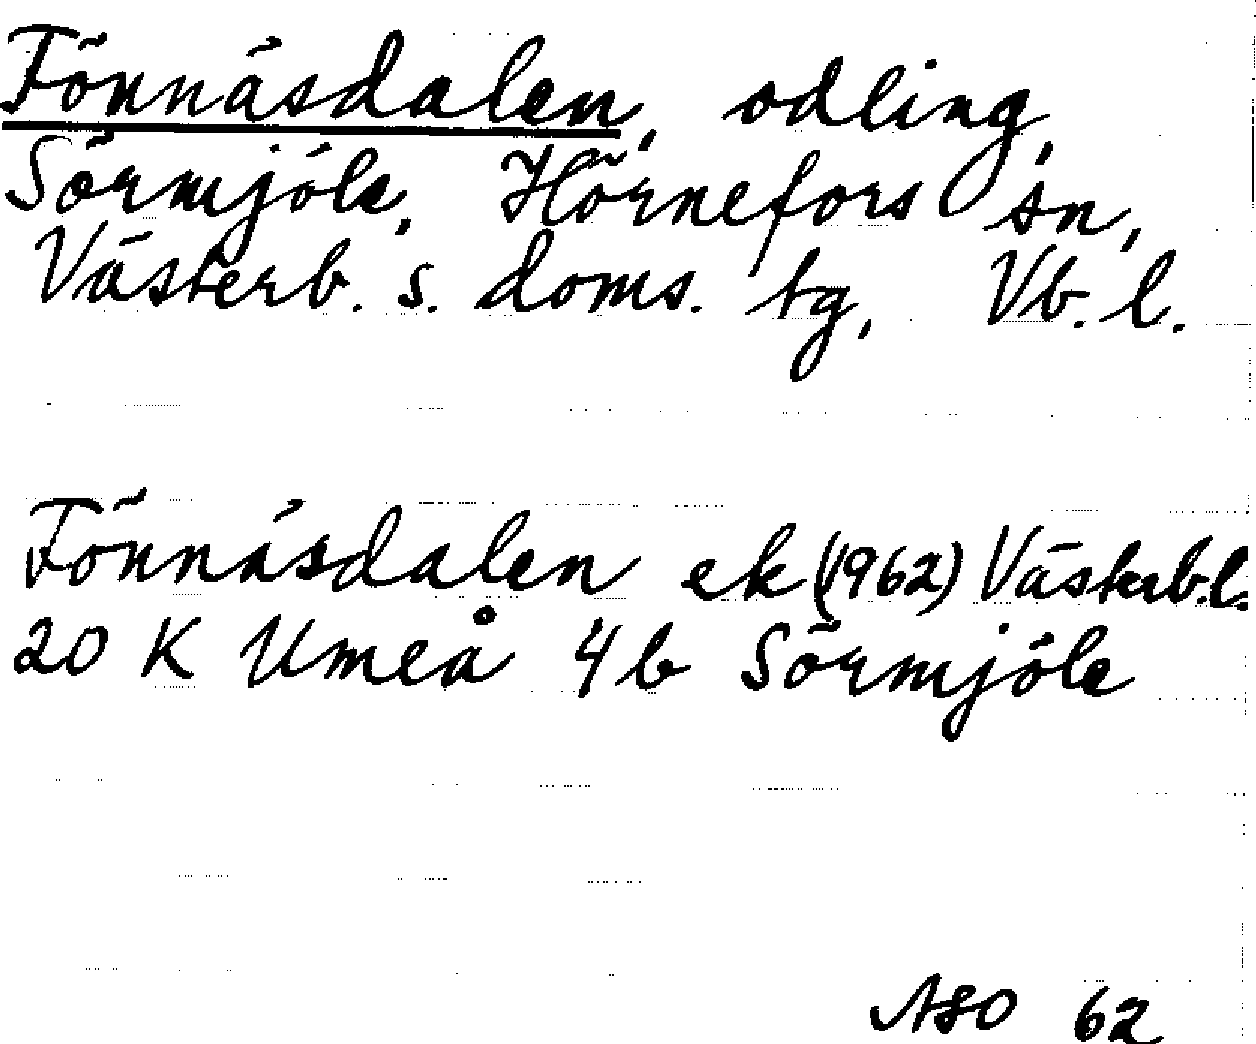 Fönnäsdalen, odling,
Sörmjöle, Hörnefors sn,
Västerb. s. doms. tg, Vb. l.
Fönnäsdalen ek (1962) Västerb.l.
20 K Umeå 4 b Sörmjöle
ASO 62